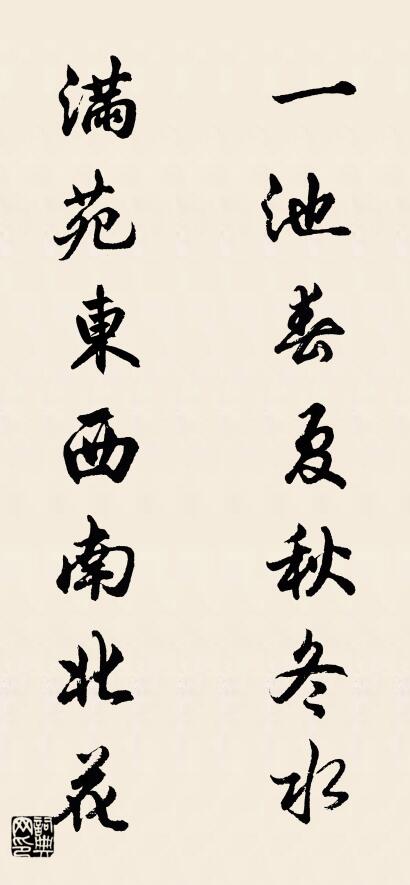 一池春夏秋冬水
满苑東西南北花
詞典网印